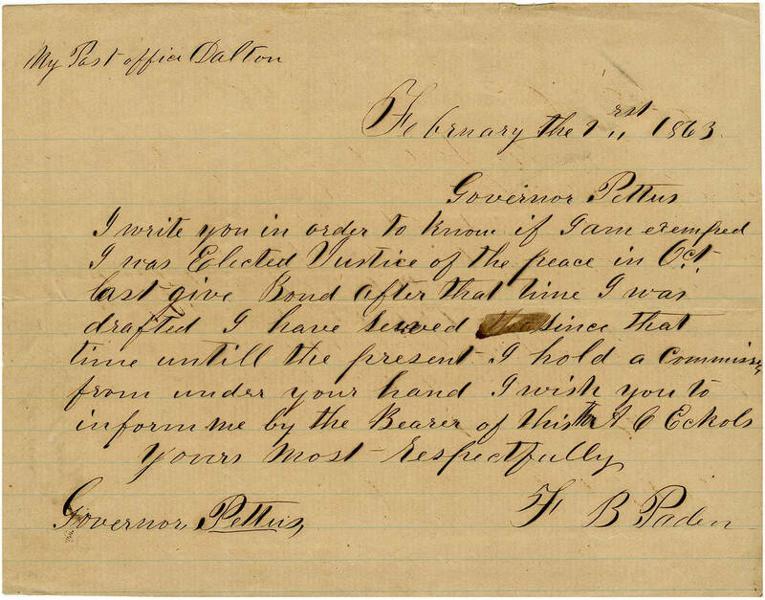 My Post office Dalton
February the 1rst 1863
Governor Pettus
I write you in order to know if I am exemped
I was Elected Justice of the peace in Oct.
last give Bond after that time I was
drafted I have served since that
time untill the present I hold a Commission
from under your hand I wish you to
inform me by the Bearer of this C Eckols
yours most respectfully
Governor Pettus, F B Paden